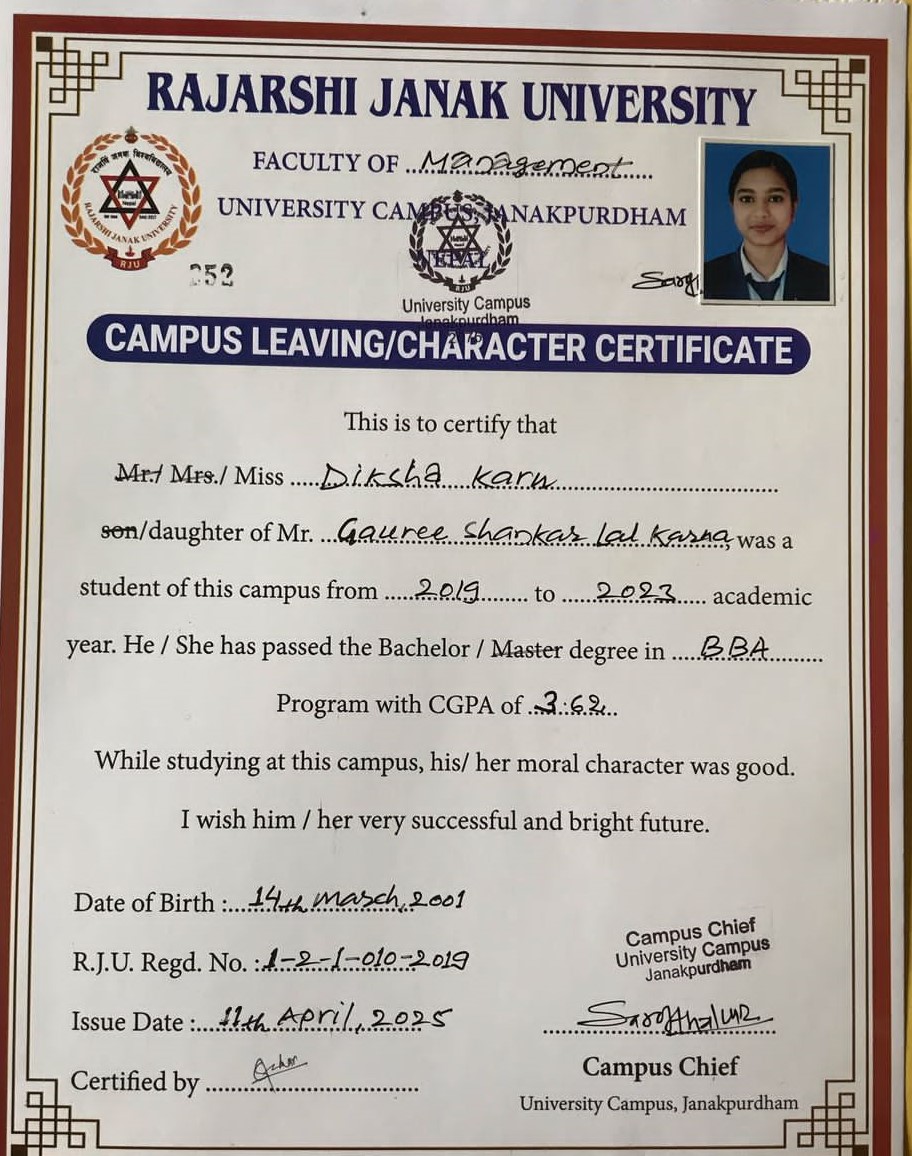 RAJARSHI JANAK UNIVERSITY
FACULTY OF Management
UNIVERSITY CAMPUS, JANAKPURDHAM
NEPAL
राजर्षि जनक विश्वविद्यालय
RAJARSHI JANAK UNIVERSITY
RJU
252
RJU
University Campus
Janakpurdham
CAMPUS LEAVING/CHARACTER CERTIFICATE
This is to certify that
Mr./ Mrs./ Miss Diksha Karn
son/daughter of Mr. Gauree Shankar Lal Karna, was a
student of this campus from 2019 to 2023 academic
year. He / She has passed the Bachelor / Master degree in BBA
Program with CGPA of 3.62
While studying at this campus, his/ her moral character was good.
I wish him / her very successful and bright future.
Date of Birth : 14th March, 2001
R.J.U. Regd. No. : 1-2-1-010-2019
Issue Date : 11th April, 2025
Certified by
Campus Chief
University Campus
Janakpurdham
Campus Chief
University Campus, Janakpurdham